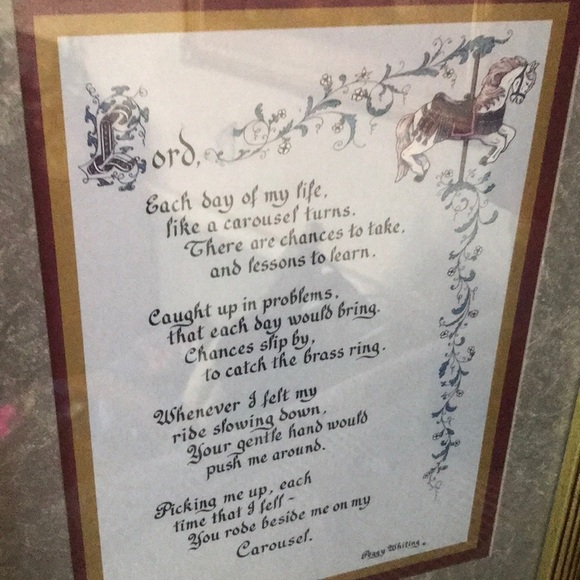 Lord,
Each day of my life,
like a carousel turns.
There are chances to take,
and lessons to learn.
Caught up in problems,
that each day would bring.
Chances slip by,
to catch the brass ring.
Whenever I felt my
ride slowing down,
Your gentle hand would
push me around.
Picking me up, each
time that I fell -
You rode beside me on my
Carousel.
Peggy Whiting